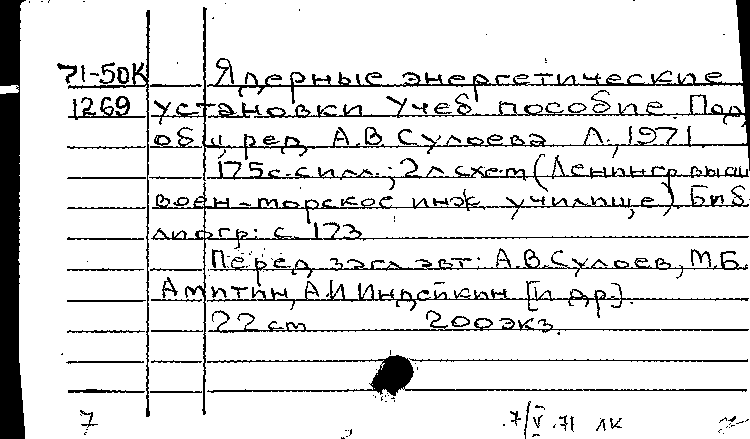 71-50К Ядерные энергетические
1269 установки Учеб. пособие. Под
общ. ред. А.В. Сулоева Л., 1971.
175 с. с илл.; 2 л схем (Ленингр высш
воен-морское инж училище) Биб
лиогр: с. 173
Перед загл авт: А.В. Сулоев, М.Б.
Амитин, А.И Индейкин [и др].
22 см 200 экз.
7 7/V .71 ЛК